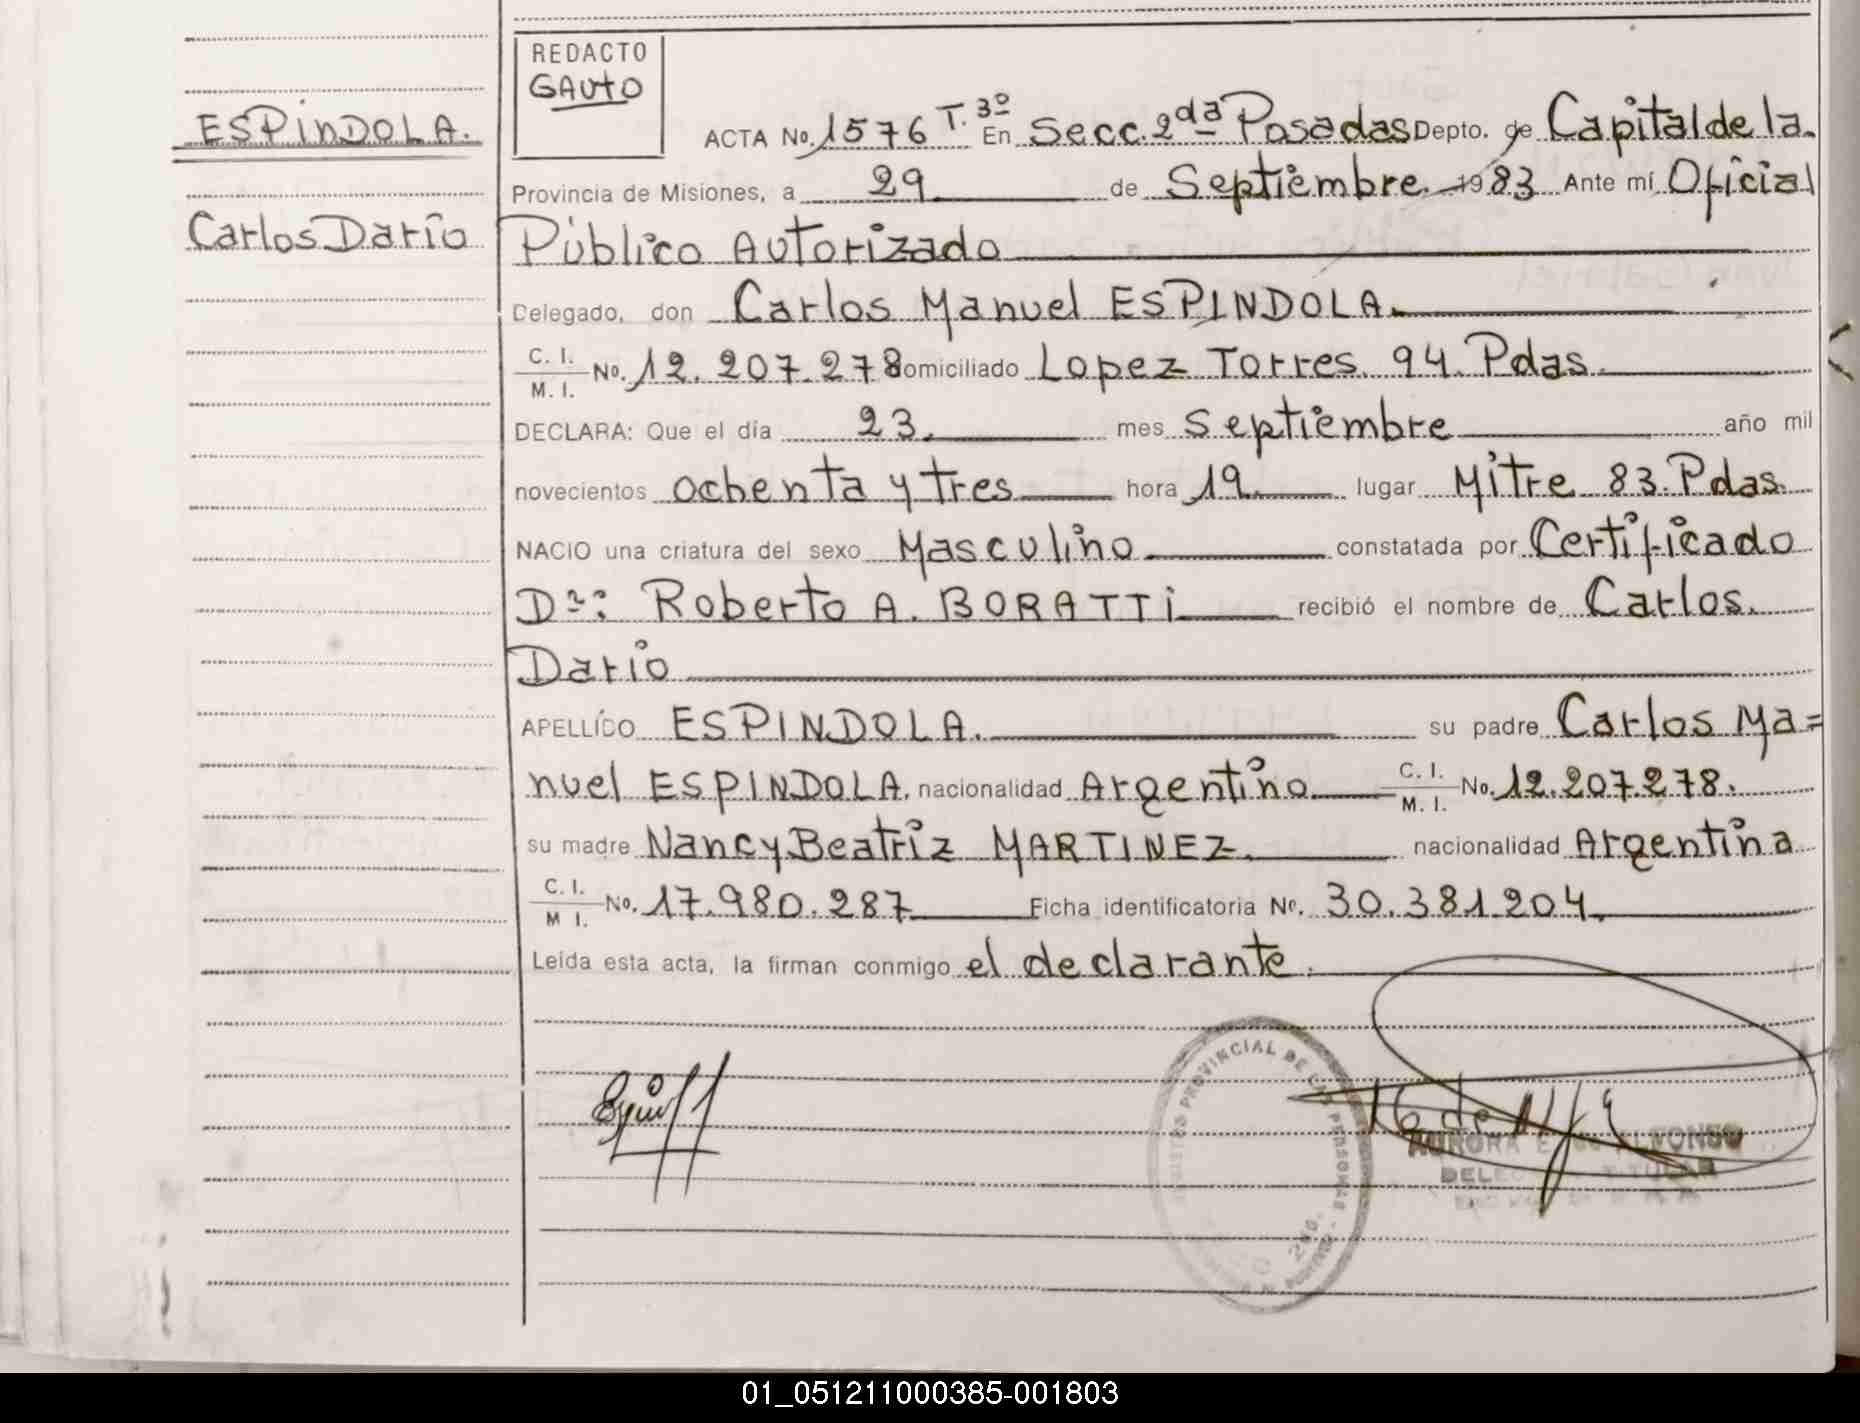 REDACTO
GAUTO
ESPINDOLA.
Carlos Darío
ACTA No. 1576 T. 3º En Secc. 2da Posadas Depto. de Capital de la
Provincia de Misiones, a 29 de Septiembre 1983 Ante mí Oficial
Público Autorizado
Delegado, don Carlos Manuel ESPINDOLA.
C. I. M. I. No. 12.207.278 domiciliado Lopez Torres 94. Pdas.
DECLARA: Que el día 23. mes Septiembre año mil
novecientos ochenta y tres hora 19. lugar Mitre 83. Pdas.
NACIO una criatura del sexo Masculino constatada por Certificado
Dr: Roberto A. BORATTI recibió el nombre de Carlos.
Darío
APELLIDO ESPINDOLA. su padre Carlos Ma=
nuel ESPINDOLA. nacionalidad Argentino C. I. M. I. No. 12.207.278.
su madre Nancy Beatriz MARTINEZ. nacionalidad Argentina
C. I. M I. No. 17.980.287 Ficha identificatoria Nº. 30.381.204.
Leída esta acta, la firman conmigo el declarante.
PROVINCIAL DE LAS PERSONAS
AURORA E. ALFONSO
TITULAR
01_051211000385-001803